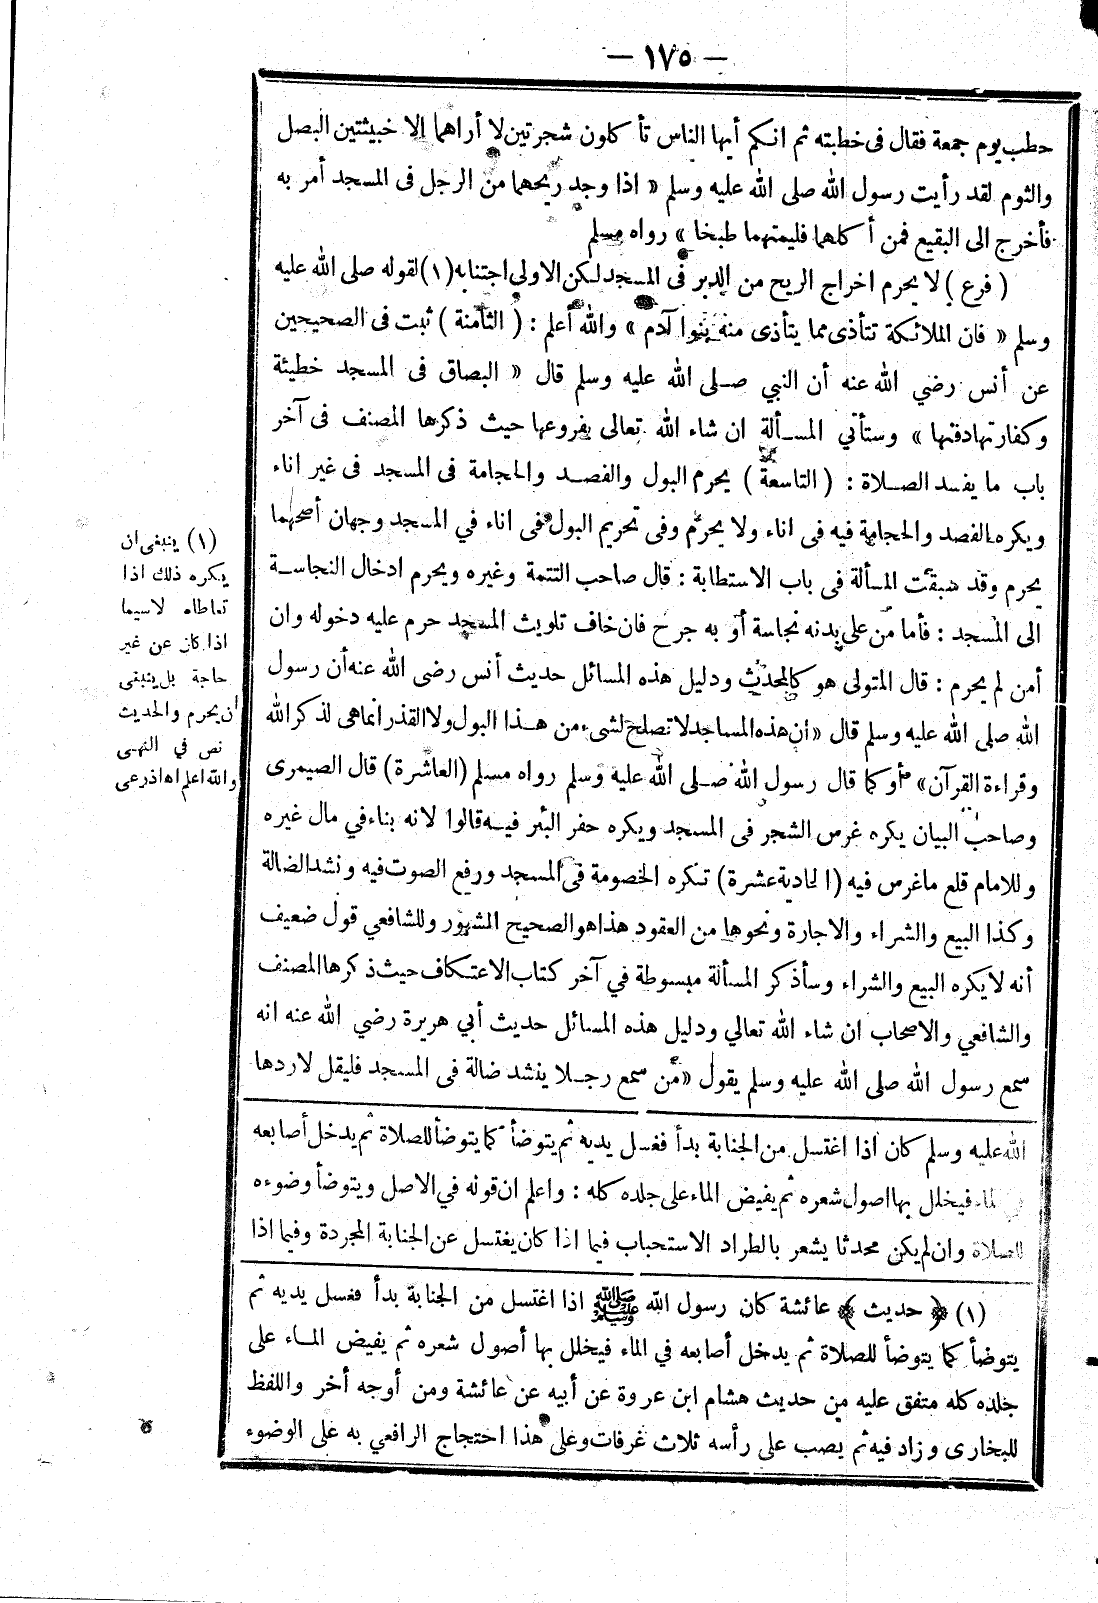 — ١٧٥ —
خطب يوم جمعة فقال فى خطبته ثم انكم أيها الناس تأكلون شجرتين لا أراهما الا خبيثتين البصل
والثوم لقد رأيت رسول الله صلى الله عليه وسلم « اذا وجد ريحهما من الرجل فى المسجد أمر به
فأخرج الى البقيع فمن أكلهما فليمتهما طبخا » رواه مسلم
( فرع ) لا يحرم اخراج الريح من الدبر فى المسجد لكن الاولى اجتنابه (١) لقوله صلى الله عليه
وسلم « فان الملائكة تتأذى مما يتأذى منه بنوا آدم » والله أعلم : ( الثامنة ) ثبت فى الصحيحين
عن أنس رضي الله عنه أن النبي صلى الله عليه وسلم قال « البصاق فى المسجد خطيئة
وكفارتها دفنها » وستأتي المسألة ان شاء الله تعالى بفروعها حيث ذكرها المصنف فى آخر
باب ما يفسد الصلاة : ( التاسعة ) يحرم البول والفصد والحجامة فى المسجد فى غير اناء
ويكره الفصد والحجامة فيه فى اناء ولا يحرم وفى تحريم البول فى اناء في المسجد وجهان أصحهما
يحرم وقد سبقت المسألة فى باب الاستطابة : قال صاحب التتمة وغيره ويحرم ادخال النجاسة
الى المسجد : فأما من على بدنه نجاسة أو به جرح فان خاف تلويث المسجد حرم عليه دخوله وان
أمن لم يحرم : قال المتولى هو كالمحدث ودليل هذه المسائل حديث أنس رضى الله عنه أن رسول
الله صلى الله عليه وسلم قال « ان هذه المساجد لا تصلح لشىء من هذا البول ولا القذر انما هى لذكر الله
وقراءة القرآن » أو كما قال رسول الله صلى الله عليه وسلم رواه مسلم (العاشرة) قال الصيمرى
وصاحب البيان يكره غرس الشجر فى المسجد ويكره حفر البئر فيه قالوا لانه بناء في مال غيره
وللامام قلع ما غرس فيه (الحادية عشرة) تكره الخصومة فى المسجد ورفع الصوت فيه ونشد الضالة
وكذا البيع والشراء والاجارة ونحوها من العقود هذا هو الصحيح المشهور وللشافعي قول ضعيف
أنه لا يكره البيع والشراء وسأذكر المسألة مبسوطة في آخر كتاب الاعتكاف حيث ذكرها المصنف
والشافعي والاصحاب ان شاء الله تعالي ودليل هذه المسائل حديث أبي هريرة رضي الله عنه انه
سمع رسول الله صلى الله عليه وسلم يقول « من سمع رجلا ينشد ضالة فى المسجد فليقل لا ردها
(١) ينبغى ان
يكره ذلك اذا
تعاطاه لاسيما
اذا كان عن غير
حاجة بل ينبغى
أن يحرم والحديث
نص في النهى
والله اعلم اه اذرعى
الله عليه وسلم كان اذا اغتسل من الجنابة بدأ فغسل يديه ثم يتوضأ كما يتوضأ للصلاة ثم يدخل أصابعه
في الماء فيخلل بها اصول شعره ثم يفيض الماء على جلده كله : واعلم ان قوله في الاصل ويتوضأ وضوءه
للصلاة وان لم يكن محدثا يشعر بالطراد الاستحباب فيما اذا كان يغتسل عن الجنابة المجردة وفيما اذا
(١) ﴿ حديث ﴾ عائشة كان رسول الله ﷺ اذا اغتسل من الجنابة بدأ فغسل يديه ثم
يتوضأ كما يتوضأ للصلاة ثم يدخل أصابعه في الماء فيخلل بها أصول شعره ثم يفيض الماء على
جلده كله متفق عليه من حديث هشام ابن عروة عن أبيه عن عائشة ومن أوجه أخر واللفظ
للبخارى وزاد فيه ثم يصب على رأسه ثلاث غرفات وعلى هذا احتجاج الرافعي به على الوضوء